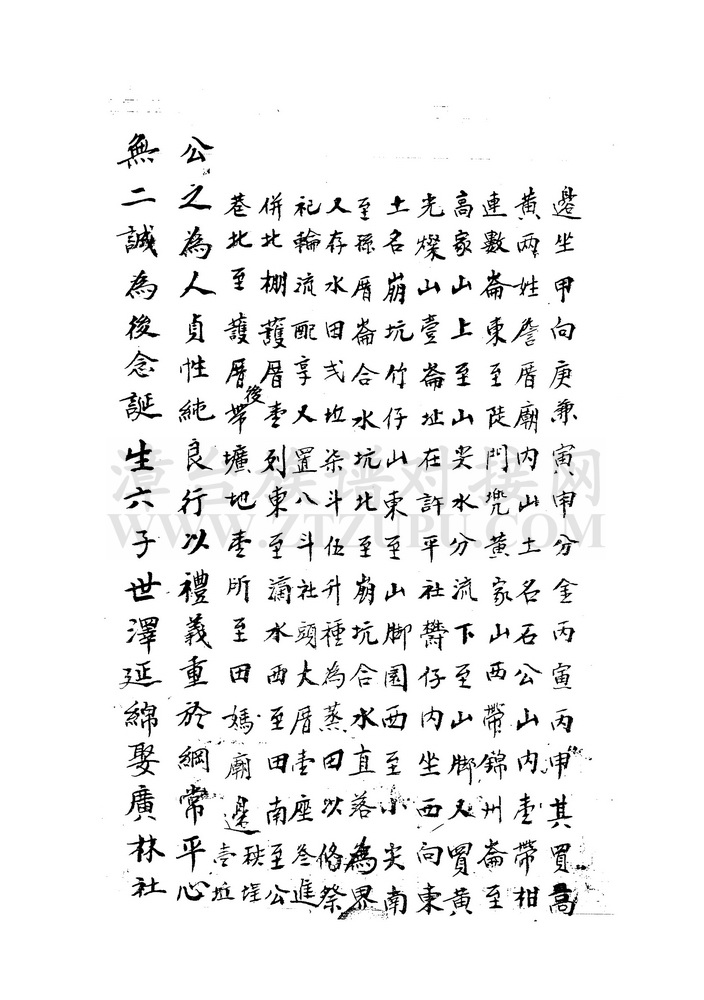 邊坐甲向庚兼寅申分金丙寅丙申其買高
黃兩姓詹厝廟內山土名石公山內壹帶柑
連數崙東至陡門兜黃家山西帶錦州崙至
高家山上至山尖水分流下至山脚又買黃
光燦山壹崙址在許平社欎仔內坐西向東
土名崩坑竹仔山東至山脚園西至小尖南
至孫厝崙合水坑北至崩坑合水直落為界
又存水田弍坵柒斗伍升種為蒸田以俻祭
祀輪流配享又置八斗社頭大厝壹座叁進
併北棚護厝壹列東至滴水西至田南至公
巷北至護厝後帶壙地壹所至田媽廟邊秧埕壹坵
公之為人貞性純良行以禮義重於綱常平心
無二誠為後念誕生六子世澤延綿娶廣林社
漳台族谱对接网
WWW.ZTZUPU.COM